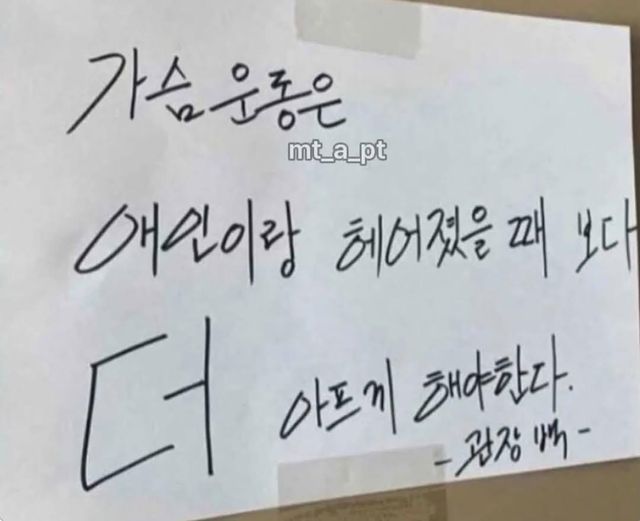 가슴 운동은
mt_a_pt
애인이랑 헤어졌을 때 보다
더 아프게 해야한다.
- 관장 백 -